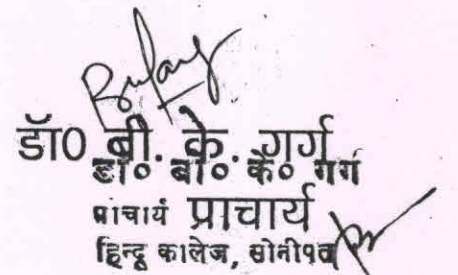 डॉ0 बी. के. गर्ग
डा० बी० के० गर्ग
प्राचार्य प्राचार्य
हिन्दू कालेज, सोनीपत